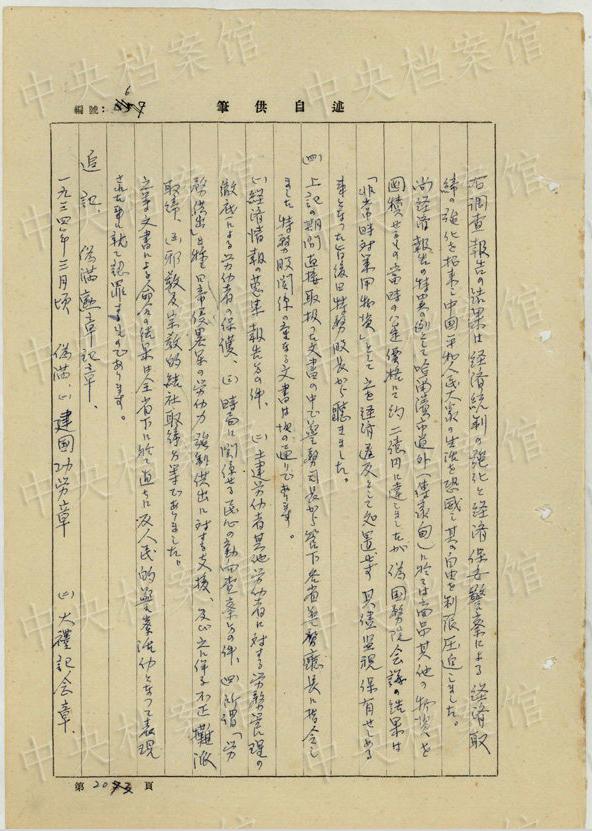 述自供筆
編號：6
右調査報告の結果は経済統制の強化と経済保安警察による経済取
締の強化を招来し中国平和人民大衆の生活を恐威し其の自由を制限圧迫しました。
尚経済報告の特異の例として哈爾濱市道外（傅家甸）に於ては商品其他の物資を
囤積せるもの当時の公定価格にて約二億円に達しましたが偽国務院会議の結果は
「非常時対策用物資」として之を経済違反として処置せず其儘監視保有せしめる
事となった旨後日特務股長から聴きました。
(四)上記の期間直接取扱った文書の中で警務司長から管下各省警務庁長に指令し
ました特務股関係の重なる文書は次の通りであります。
(一)経済情報の蒐集報告の件、(二)土建労働者其他労働者に対する労務管理の
徹底による労働者の保護、(三)時局に関係せる民心の動向査察の件、(四)所謂「労
務供出」と称する帝侵略軍の労働力強制供出に対する支援、及び之に伴ふ不正難派
取締、(五)邪教及宗教的結社取締の等でありました。
之等文書による命令の結果は全省下に於て直ちに反人民的警察活動となって表現
された事に就て認罪するものであります。
追記、偽満勲章記章、
一九三四年三月頃 偽満、(一)建国功労章 (二)大禮記念章、
第20頁
中央档案馆